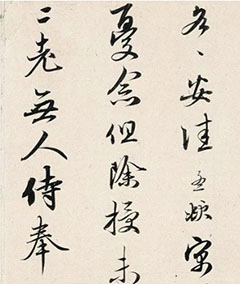 各々安佳無煩
憂念但除授未
二老無人侍奉